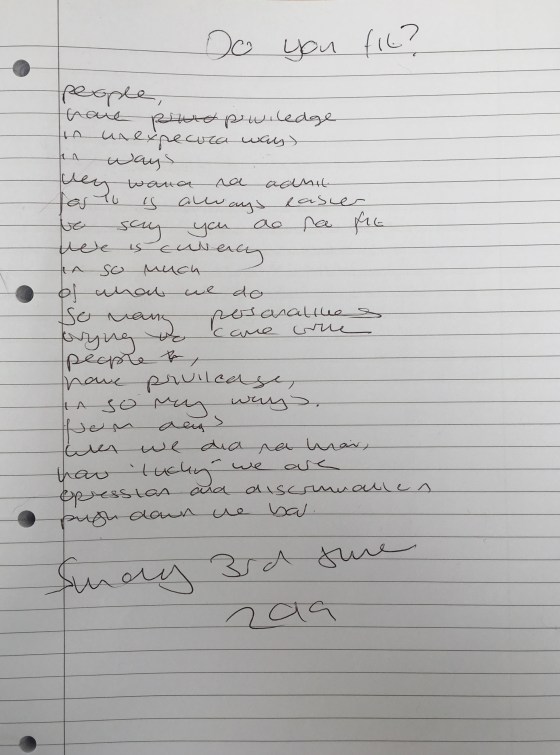 Do you fit?
people,
have priviledge
in unexpected ways
in ways
they wana not admit
for it is always easier
to say you do not fit
there is currency
in so much
of what we do
so many personalities
trying to come
people,
have priviledge,
in so many ways.
from days
when we did not know
how 'lucky' we are
opression and discrimination
push down the bar.
Sunday 3rd June
2019